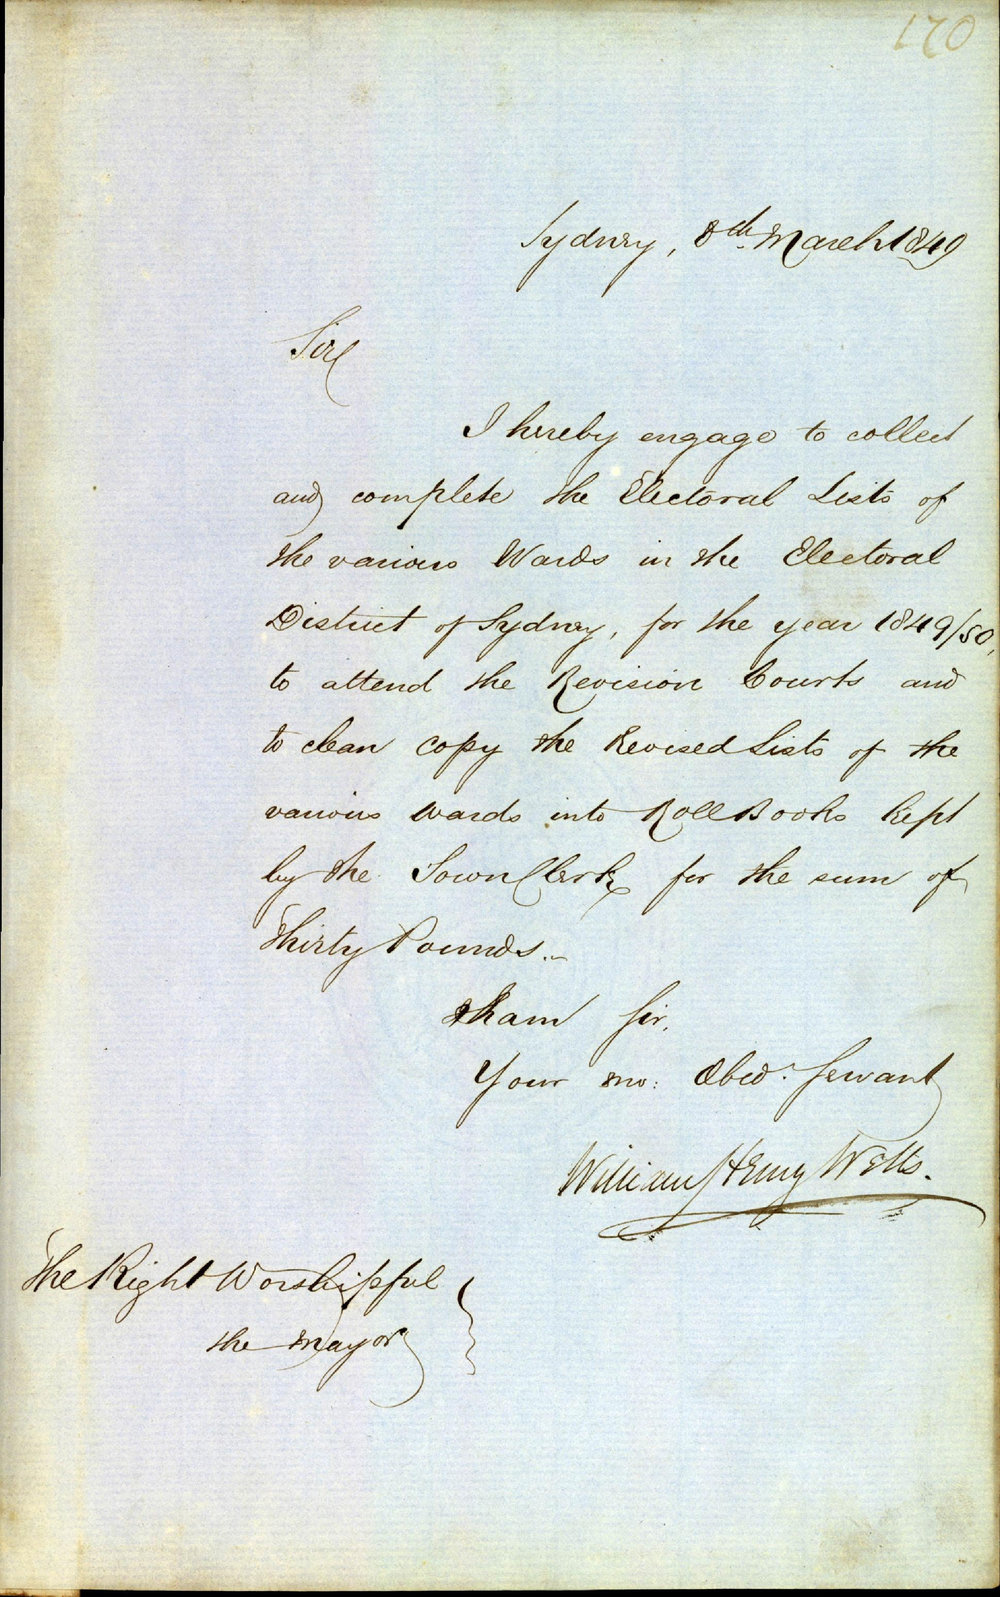 170
Sydney, 8th March 1849
Sir
I hereby engage to collect
and complete the Electoral Lists of
the various Wards in the Electoral
District of Sydney, for the year 1849/50,
to attend the Revision Courts and
to clean copy the Revised Lists of the
various Wards into Roll Books kept
by the Town Clerk for the sum of
Thirty Pounds.
I am Sir,
Your mo: Obed. Servant
William Henry Wells.
The Right Worshipful
the Mayor